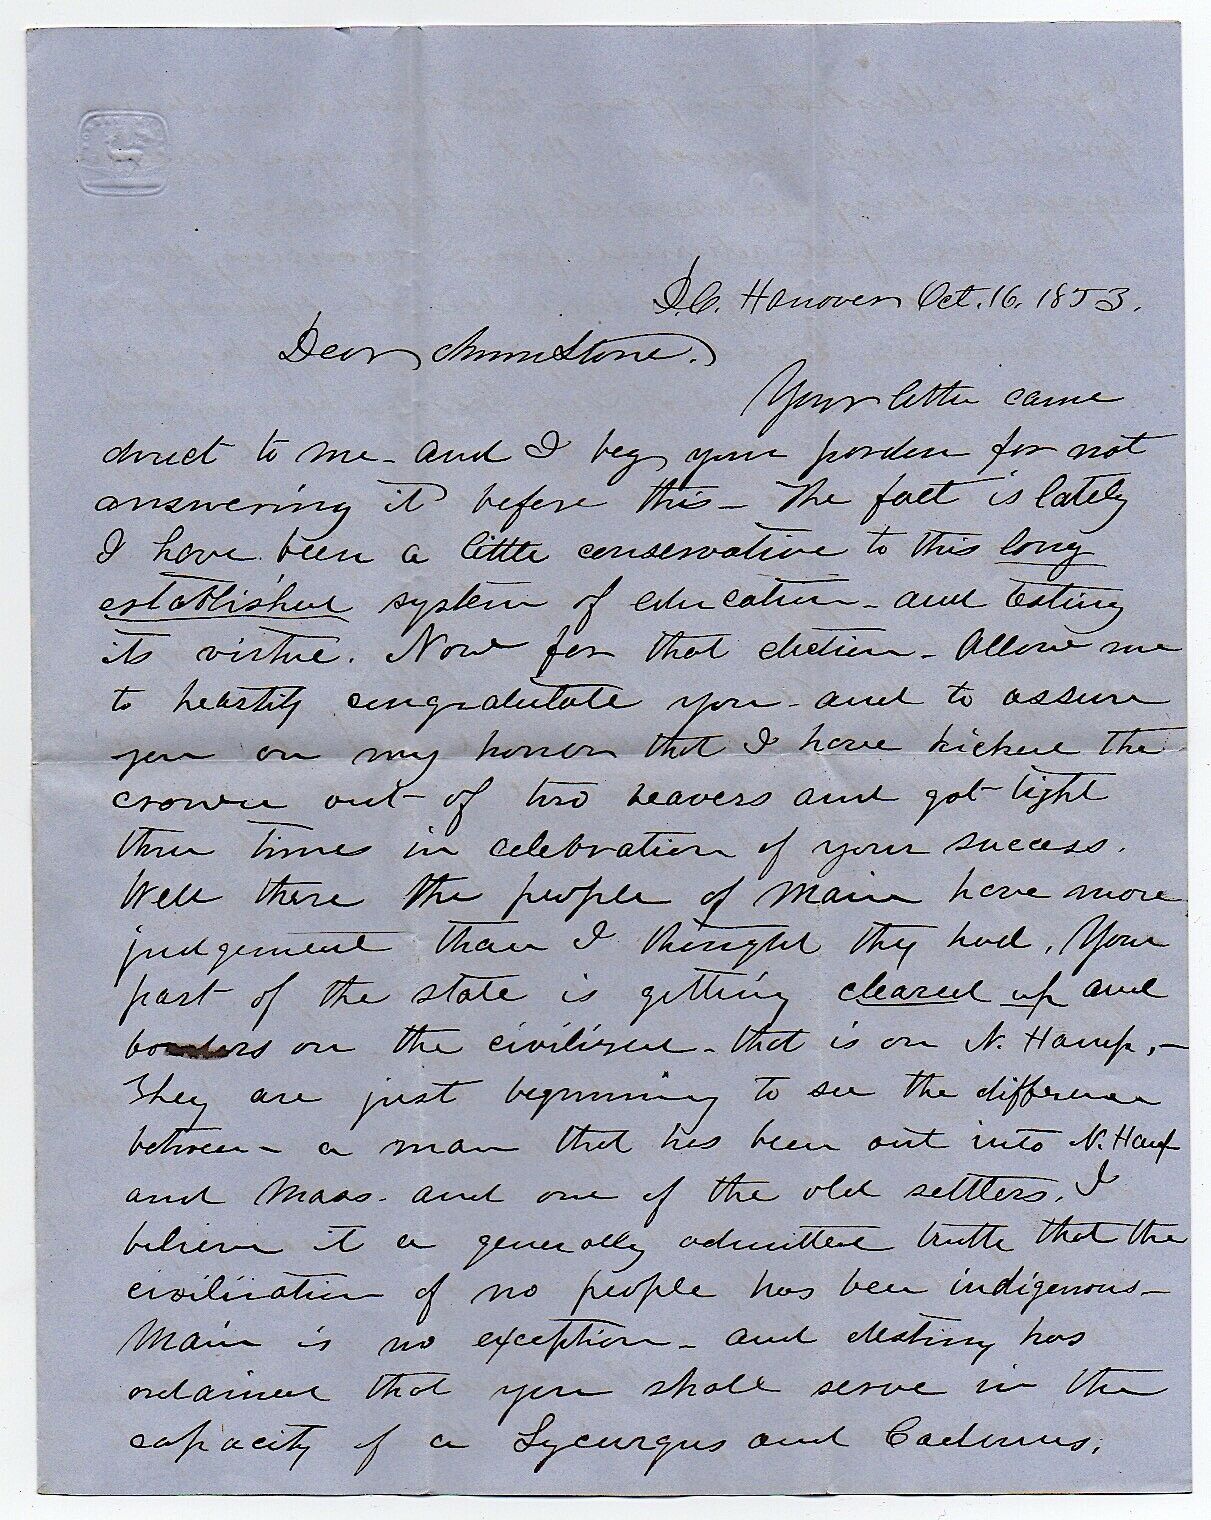 D.C. Hanover Oct. 16. 1853.
Dear
Your letter came
direct to me - and I beg your pardon for not
answering it before this - The fact is lately
I have been a little conservative to this long
established system of education - and testing
its virtue. Now for that election - Allow me
to heartily congratulate you - and to assure
you on my honor that I have kicked the
crown out of two beavers and got tight
three times in celebration of your success.
Well there the people of Main have more
judgement than I thought they had. Your
part of the state is getting cleared up and
borders on the civilized - that is on N. Hamp, -
They are just beginning to see the difference
between - a man that has been out into N. Hamp
and Mass. and one of the old settlers. I
believe it a generally admitted truth that the
civilization of no people has been indigenous -
Main is no exception - and destiny has
ordained that you shall serve in the
capacity of a Lycurgus and Cadmus.